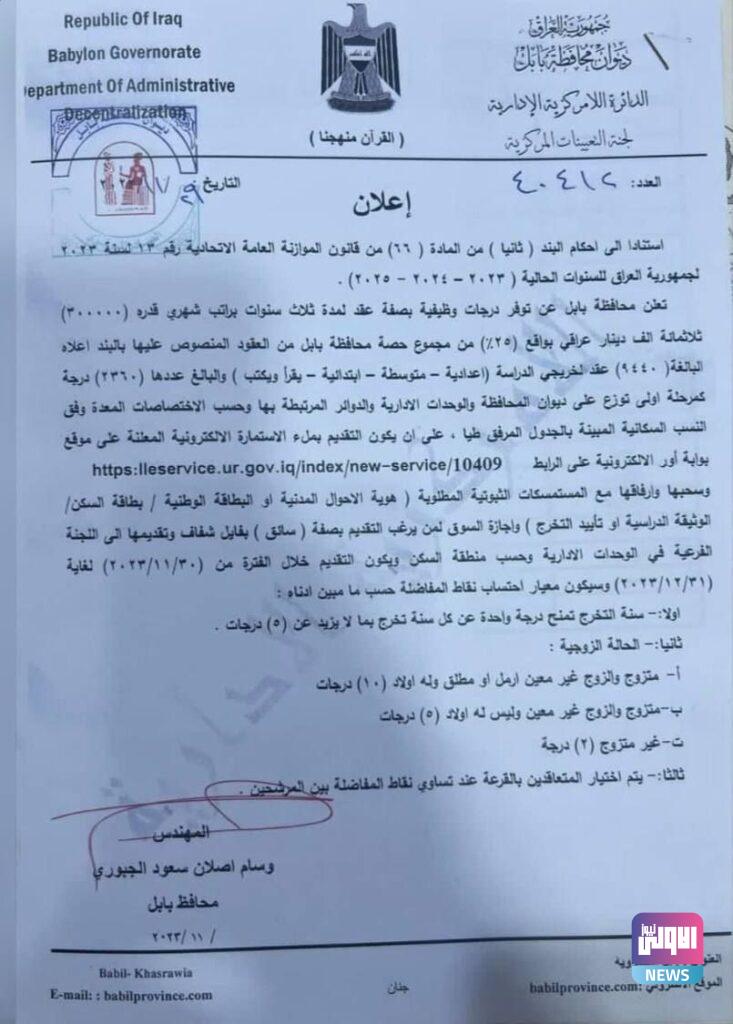 Republic Of Iraq
Babylon Governorate
Department Of Administrative
Decentralization
جمهورية العراق
ديوان محافظة بابل
الدائرة اللامركزية الإدارية
لجنة التعيينات المركزية
( القرآن منهجنا )
العدد: ٤٠٤١٢
التاريخ
إعلان
استنادا الى احكام البند ( ثانيا ) من المادة (٦٦) من قانون الموازنة العامة الاتحادية رقم ١٣ لسنة ٢٠٢٣
لجمهورية العراق للسنوات الحالية ( ٢٠٢٣ – ٢٠٢٤ – ٢٠٢٥) .
تعلن محافظة بابل عن توفر درجات وظيفية بصفة عقد لمدة ثلاث سنوات براتب شهري قدره (٣٠٠٠٠٠)
ثلاثمائة الف دينار عراقي بواقع (٢٥٪) من مجموع حصة محافظة بابل من العقود المنصوص عليها بالبند اعلاه
البالغة( ٩٤٤٠) عقد لخريجي الدراسة (اعدادية – متوسطة – ابتدائية – يقرأ ويكتب ) والبالغ عددها (٢٣٦٠) درجة
كمرحلة اولى توزع على ديوان المحافظة والوحدات الادارية والدوائر المرتبطة بها وحسب الاختصاصات المعدة وفق
النسب السكانية المبينة بالجدول المرفق طيا ، على ان يكون التقديم بملء الاستمارة الالكترونية المعلنة على موقع
بوابة أور الالكترونية على الرابط https:lleservice.ur.gov.iq/index/new-service/10409
وسحبها وارفاقها مع المستمسكات الثبوتية المطلوبة ( هوية الاحوال المدنية او البطاقة الوطنية / بطاقة السكن/
الوثيقة الدراسية او تأييد التخرج ) واجازة السوق لمن يرغب التقديم بصفة ( سائق ) بفايل شفاف وتقديمها الى اللجنة
الفرعية في الوحدات الادارية وحسب منطقة السكن ويكون التقديم خلال الفترة من (٢٠٢٣/١١/٣٠) لغاية
(٢٠٢٣/١٢/٣١) وسيكون معيار احتساب نقاط المفاضلة حسب ما مبين ادناه :
اولا:– سنة التخرج تمنح درجة واحدة عن كل سنة تخرج بما لا يزيد عن (٥) درجات .
ثانيا:– الحالة الزوجية :
أ– متزوج والزوج غير معين ارمل او مطلق وله اولاد (١٠) درجات
ب–متزوج والزوج غير معين وليس له اولاد (٥) درجات
ت–غير متزوج (٢) درجة
ثالثا:– يتم اختيار المتعاقدين بالقرعة عند تساوي نقاط المفاضلة بين المرشحين .
المهندس
وسام اصلان سعود الجبوري
محافظ بابل
/ ١١ / ٢٠٢٣
Babil- Khasrawia
E-mail: : babilprovince.com
جنان
الموقع الالكتروني: babilprovince.com
الاولى نيوز
NEWS